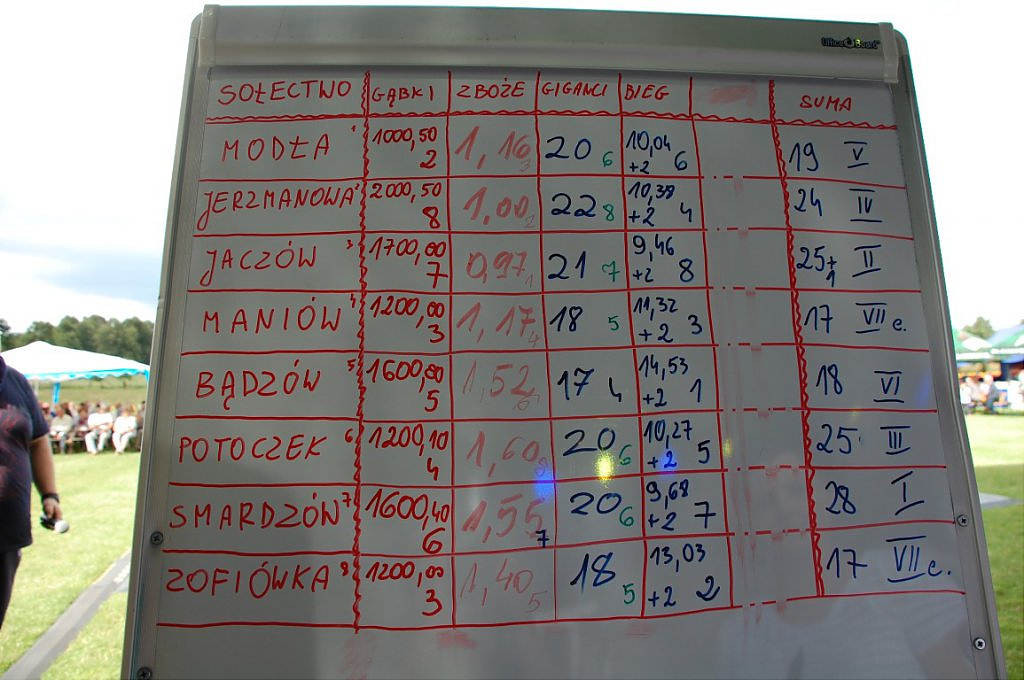 Office Board
SOŁECTWO GĄBKI ZBOŻE GIGANCI BIEG SUMA
MODŁA 1 1000,50 2 1,16 3 20 6 10,04 +2 6 19 V
JERZMANOWA 2 2000,50 8 1,00 2 22 8 10,39 +2 4 24 IV
JACZÓW 3 1700,00 7 0,97 1 21 7 9,46 +2 8 25+1 II
MANIÓW 4 1200,00 3 1,17 4 18 5 11,32 +2 3 17 VII e.
BĄDZÓW 5 1600,00 5 1,52 6 17 4 14,53 +2 1 18 VI
POTOCZEK 6 1200,10 4 1,60 8 20 6 10,27 +2 5 25 III
SMARDZÓW 7 1600,40 6 1,55 7 20 6 9,68 +2 7 28 I
ZOFIÓWKA 8 1200,00 3 1,40 5 18 5 13,03 +2 2 17 VII e.